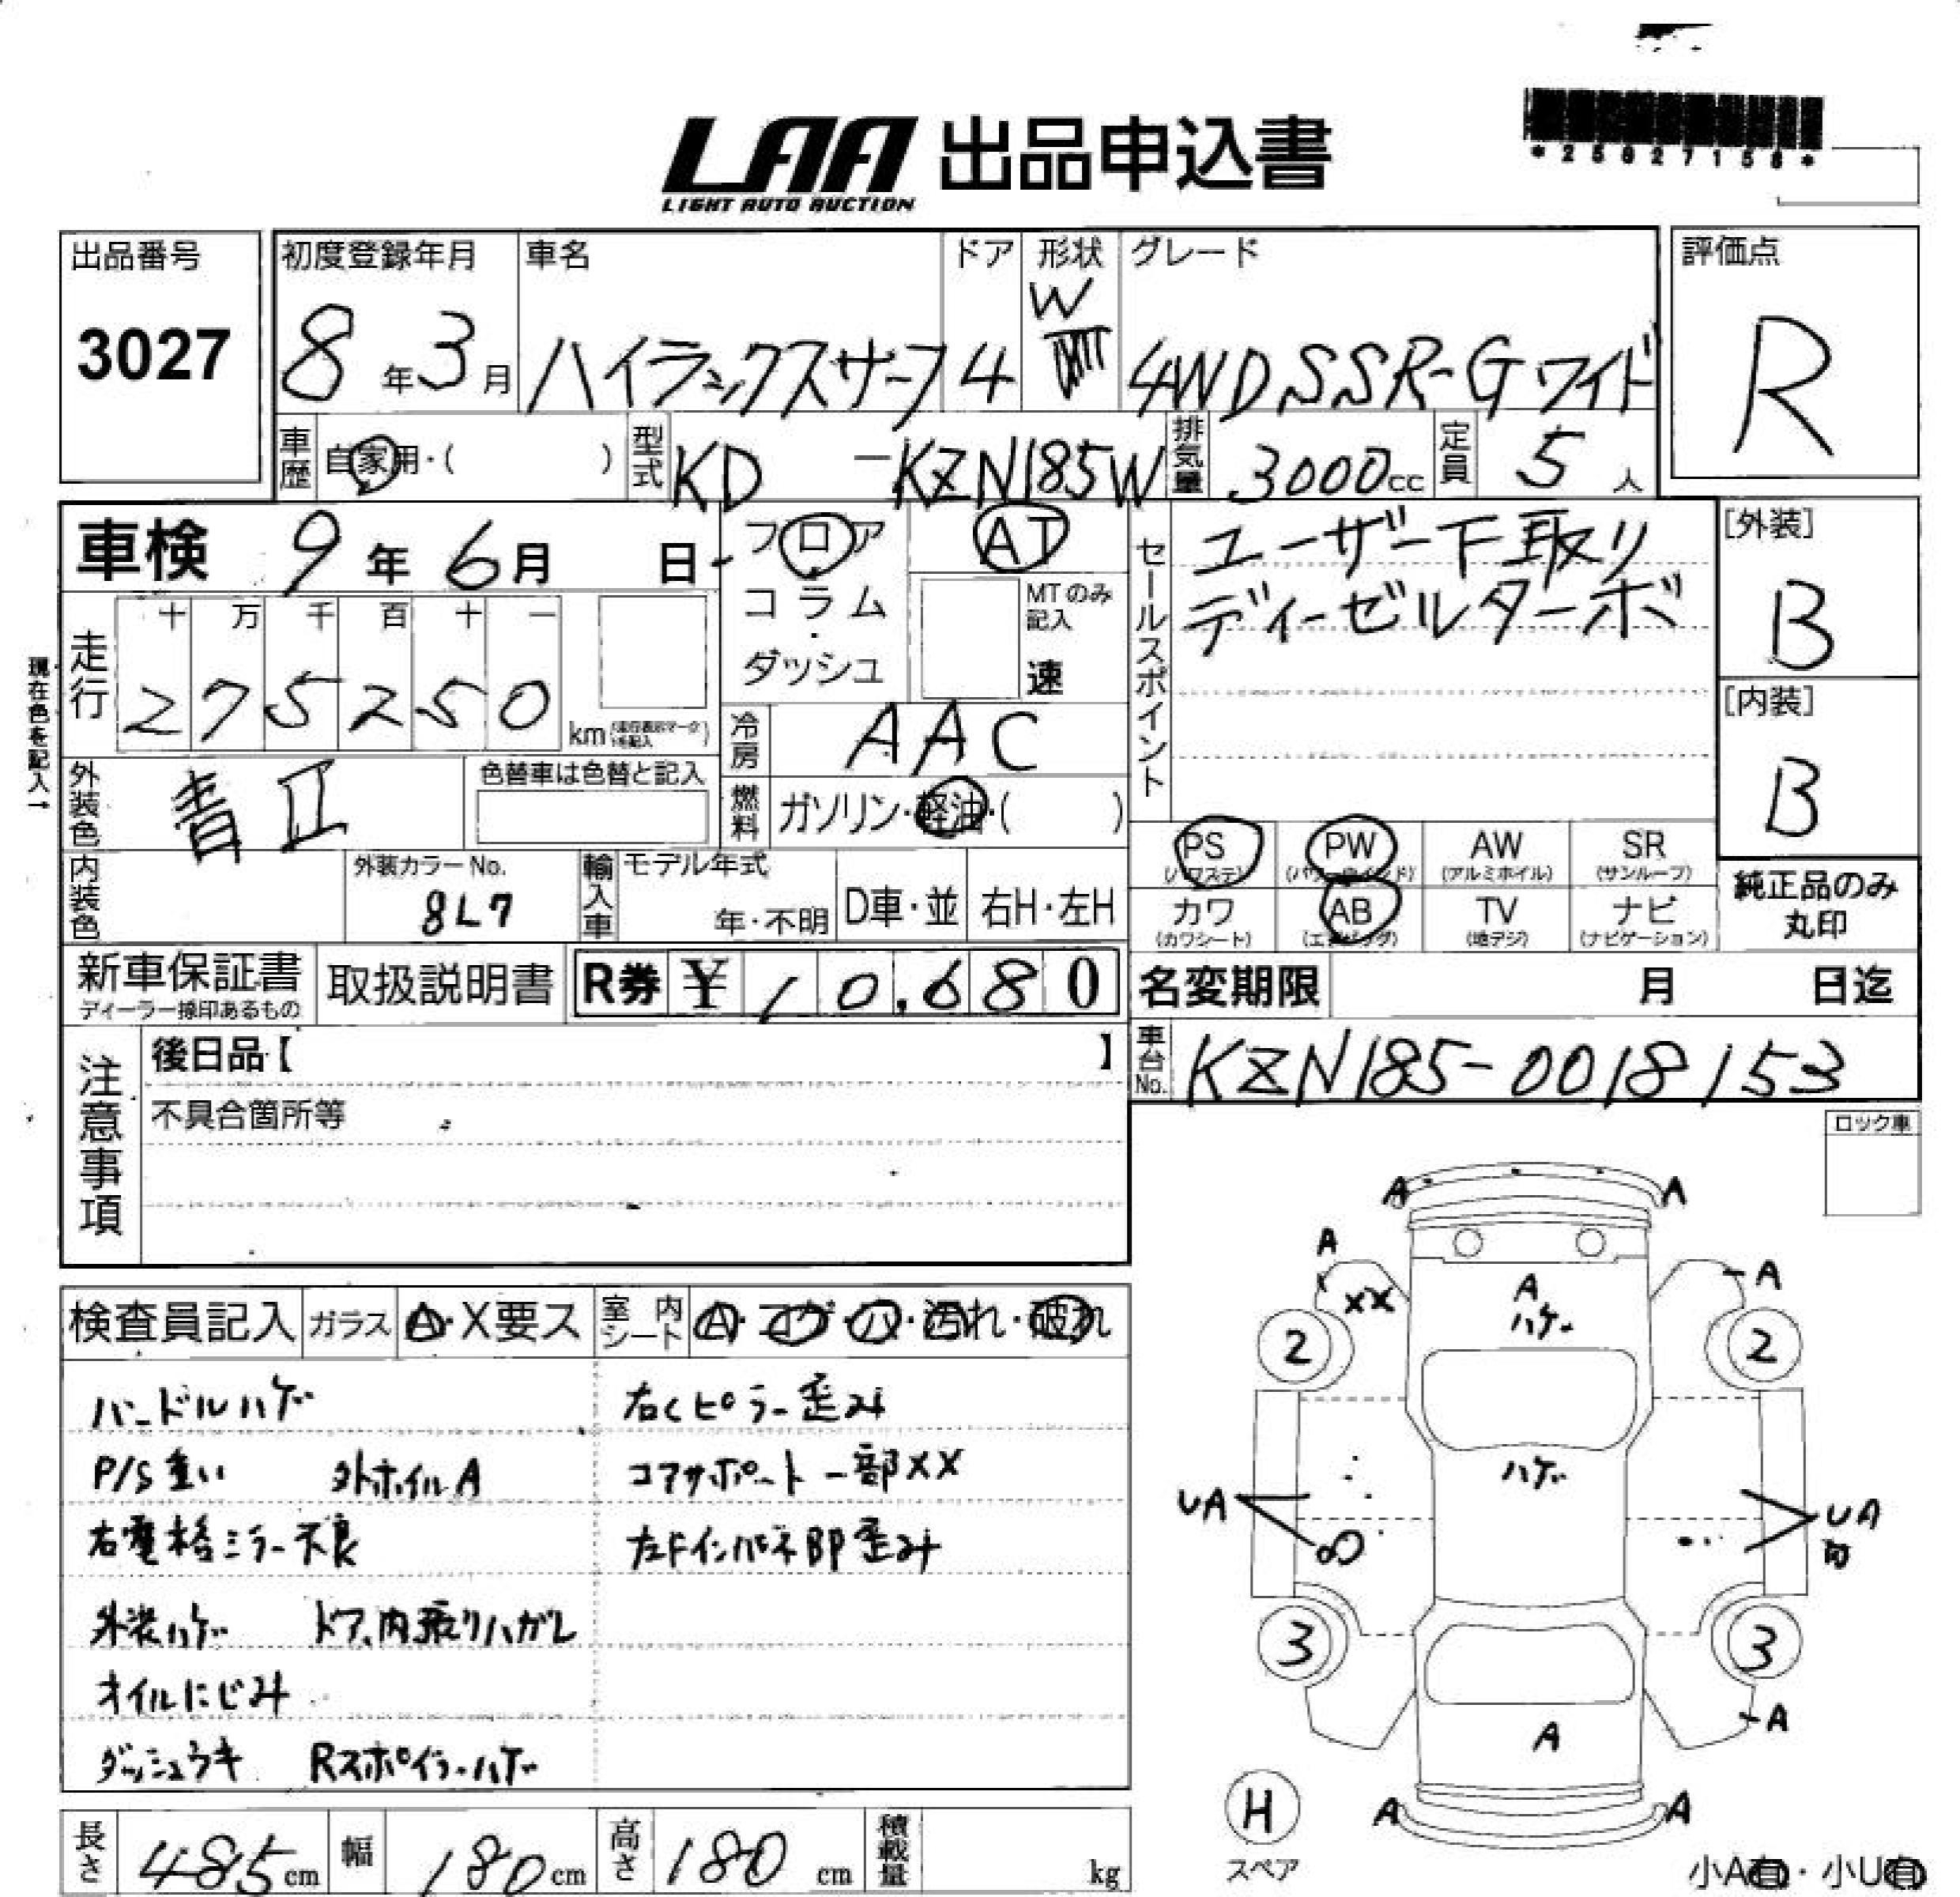 *25027158*
LAA 出品申込書
LIGHT AUTO AUCTION
出品番号
3027
初度登録年月
8年3月
車名
ハイラックスサーフ
ドア
4
形状
W
グレード
4WD SSR-G ワイド
評価点
R
車歴
自家用・( )
型式
KD -KZN185W
排気量
3000cc
定員
5人
車検 9年6月 日
フロア
コラム
・
ダッシュ
AT
MTのみ
記入
速
セールスポイント
ユーザー下取り
ディーゼルターボ
[外装]
B
[内装]
B
現在色を記入→
走行
十 万 千 百 十 一
2 7 5 2 5 0
km
冷房
AAC
外装色
青II
色替車は色替と記入
燃料
ガソリン・軽油・( )
PS
(パワステ)
PW
(パワーウインド)
AW
(アルミホイル)
SR
(サンルーフ)
内装色
外装カラーNo.
8L7
輸入車
モデル年式
年・不明
D車・並
右H・左H
カワ
(カワシート)
AB
(エアバッグ)
TV
(地デジ)
ナビ
(ナビゲーション)
純正品のみ
丸印
新車保証書
ディーラー捺印あるもの
取扱説明書
R券 ¥10,680
名変期限 月 日迄
注意事項
後日品【 】
不具合箇所等
車台No.
KZN185-0018153
ロック車
検査員記入
ガラス
A・X要ス
室内シート
A・コゲ・ハ・汚れ・破れ
ハンドルハゲ
P/S重い 外ホイルA
右電格ミラー不良
外装ハゲ ドア内張りハガレ
オイルにじみ
ダッシュウキ RスポイラーハゲI
右Cピラー歪み
コアサポート一部XX
左Fインパネ部歪み
A A
A
XX
A
A
ハゲ
2 2
ハゲ
UA
UA
3 3
A
A
A A
H
スペア
小A有・小U有
長さ 485cm
幅 180cm
高さ 180cm
積載量 kg